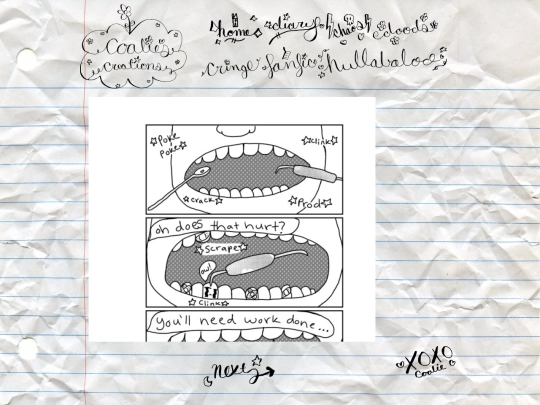 Coalie's
Creations
home diary of chaos edoods
cringe fanfics hullabaloo
Poke
Poke
Clink
crack
Prod
oh does that hurt?
Scrape
ow!
Clink
you'll need work done...
next
XOXO
Coalie